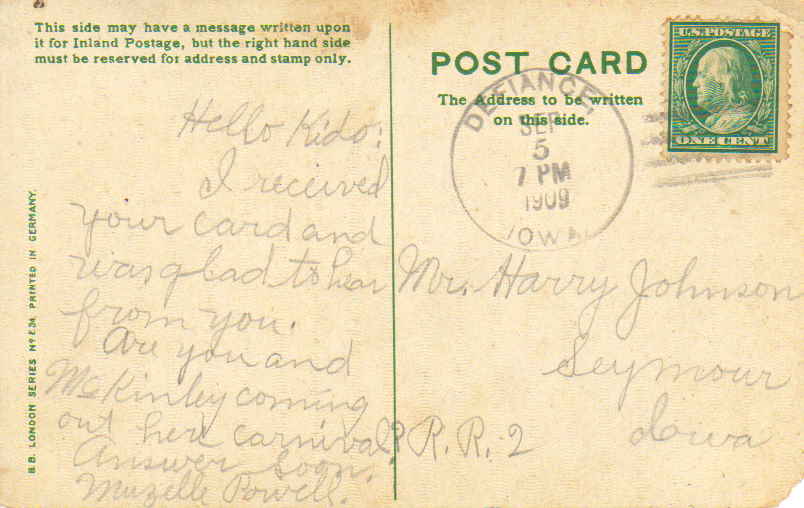 This side may have a message written upon
it for Inland Postage, but the right hand side
must be reserved for address and stamp only.
Hello Kido:
I received
your card and
was glad to hear
from you.
Are you and
McKinley coming
out here carnival?
Answer soon.
Muzelle Powell.
B.B. LONDON SERIES Nº E34. PRINTED IN GERMANY.
POST CARD
The Address to be written
on this side.
U.S. POSTAGE
ONE CENT
DEFIANCE,
SEP
5
7 PM
1909
IOWA
Mr. Harry Johnson
Seymour
R.R.-2 Iowa